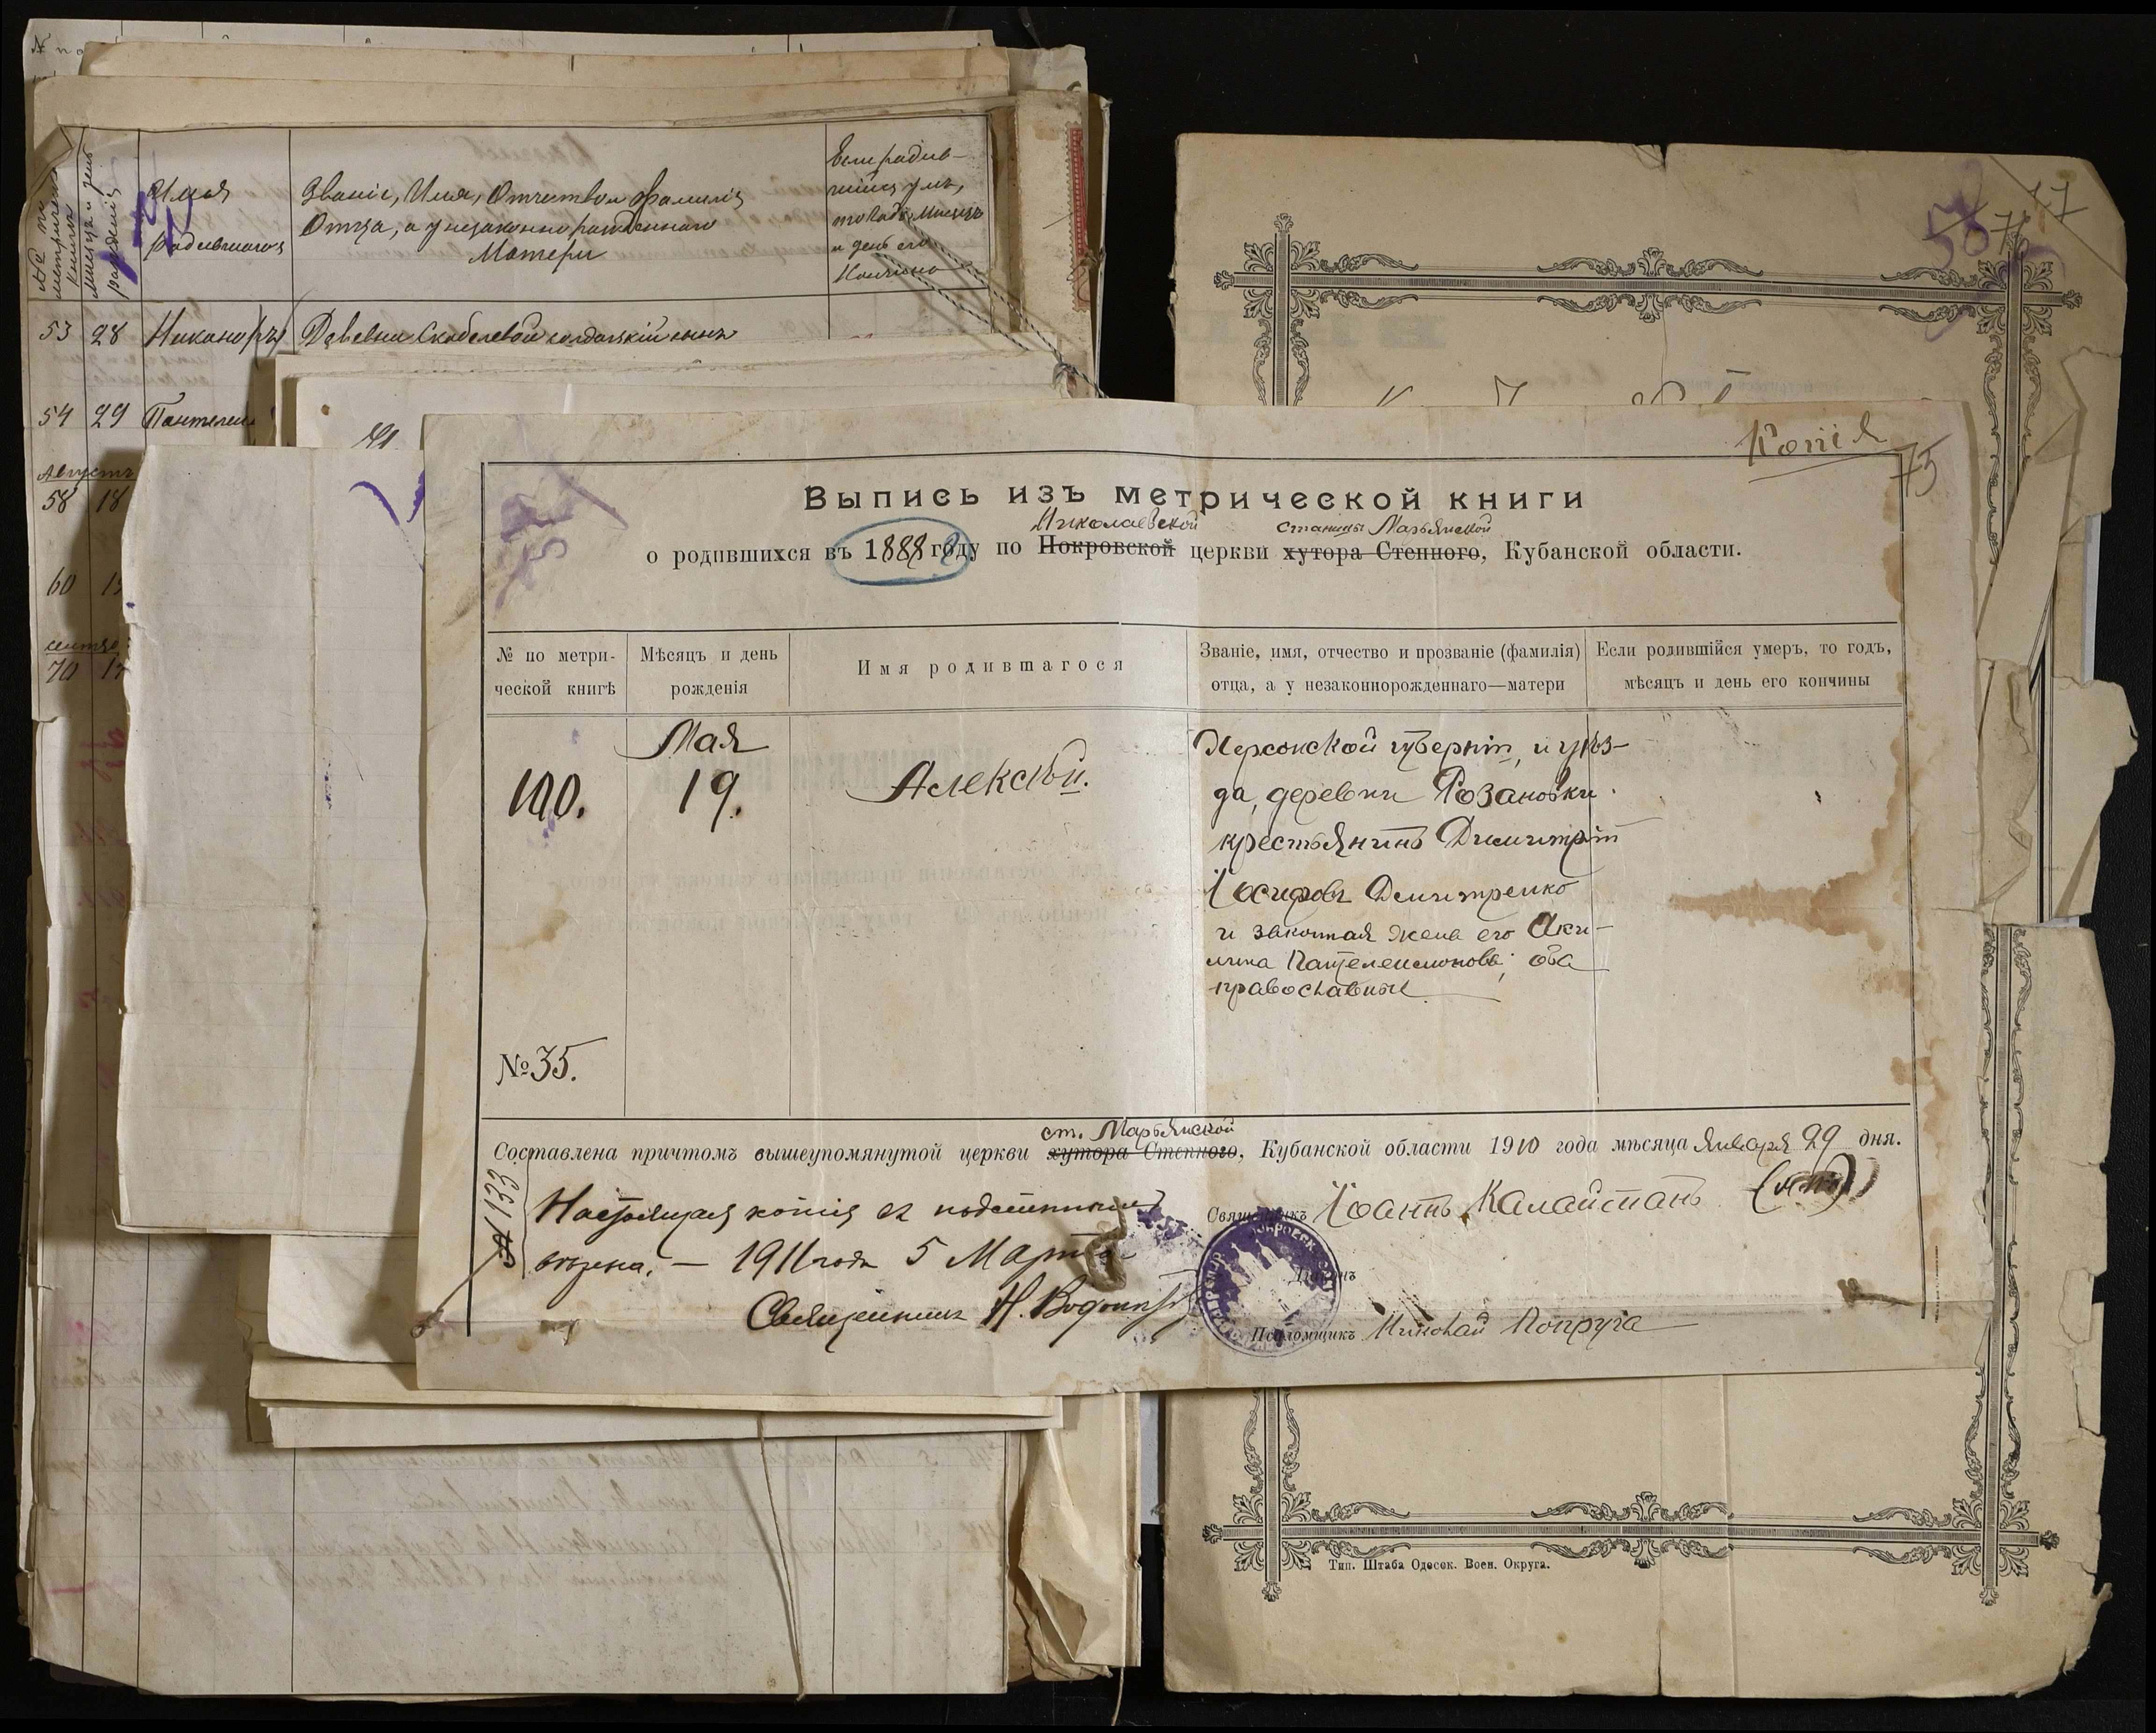 Имя
родившагося
Званіе, Имя, Отчество и фамилія
Отца, а у незаконно рожденнаго
Матери
Если родив-
шійся умъ,
то годъ, мѣсяцъ
и день его
Кончины
53 28 Никаноръ Деревни Скобелевой солдатскій сынъ
54 29 Пантелеи
Августъ
58 18
60
70
77
Копія
75
Выпись изъ метрической книги
Николаевской станицы Марьянской
о родившихся въ 1888 году по Покровской церкви хутора Степного, Кубанской области.
№ по метри-
ческой книгѣ
Мѣсяцъ и день
рожденія
Имя родившагося
Званіе, имя, отчество и прозваніе (фамилія)
отца, а у незаконнорожденнаго—матери
Если родившійся умеръ, то годъ,
мѣсяцъ и день его кончины
100.
Мая
19.
Алексѣй.
Херсонской губерніи, и уѣз-
да, деревни Розановки
крестьянинъ Димитрій
Іосифовъ Демитренко
и законная жена его Аки-
лина Пантелеимонова; оба
православные
№ 35.
ст. Марьянской
Составлена причтомъ вышеупомянутой церкви хутора Степного, Кубанской области 1910 года мѣсяца Января 29 дня.
№ 133
Настоящая копія съ подлиннымъ
вѣрна. — 1911 года 5 Марта
Священникъ Н.
Священникъ Іоаннъ Калайтанъ
Діаконъ
Псаломщикъ Николай Попруга
Тип. Штаба Одесск. Воен. Округа.